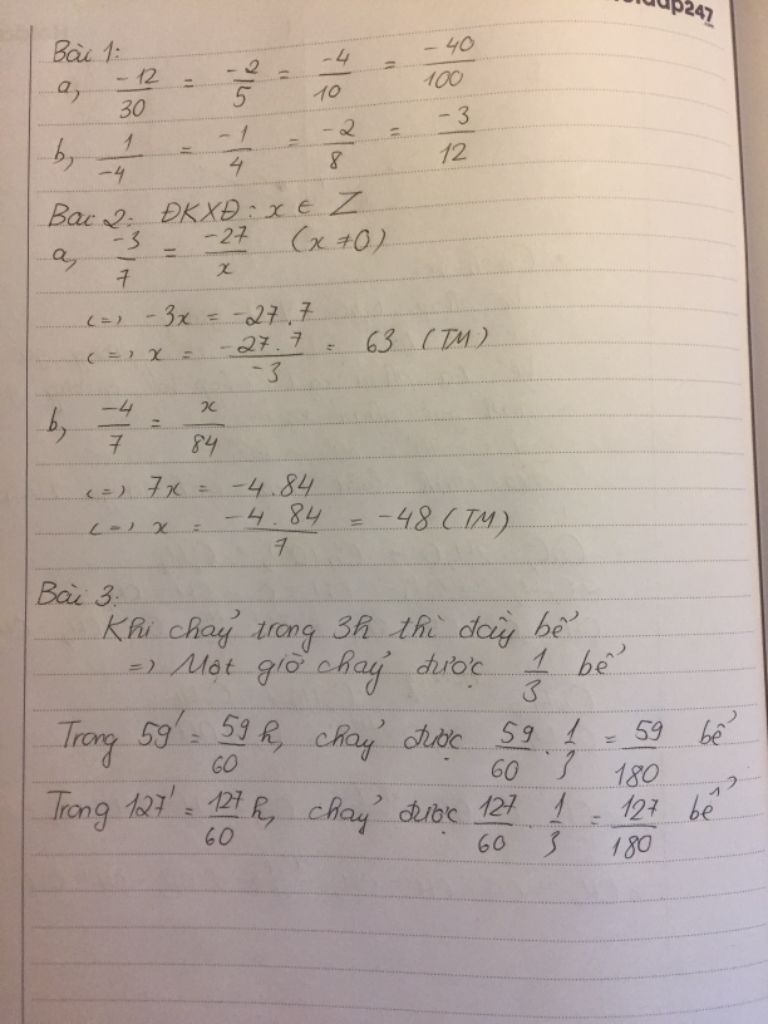 Bài 1:
a, -12/30 = -2/5 = -4/10 = -40/100
b, 1/-4 = -1/4 = -2/8 = -3/12
Bài 2: ĐKXĐ: x ∈ Z
a, -3/7 = -27/x (x ≠ 0)
<=> -3x = -27.7
<=> x = -27.7/-3 = 63 (TM)
b, -4/7 = x/84
<=> 7x = -4.84
<=> x = -4.84/7 = -48 (TM)
Bài 3:
Khi chảy trong 3h thì đầy bể
=> Một giờ chảy được 1/3 bể
Trong 59' = 59/60 h, chảy được 59/60 . 1/3 = 59/180 bể
Trong 127' = 127/60 h, chảy được 127/60 . 1/3 = 127/180 bể